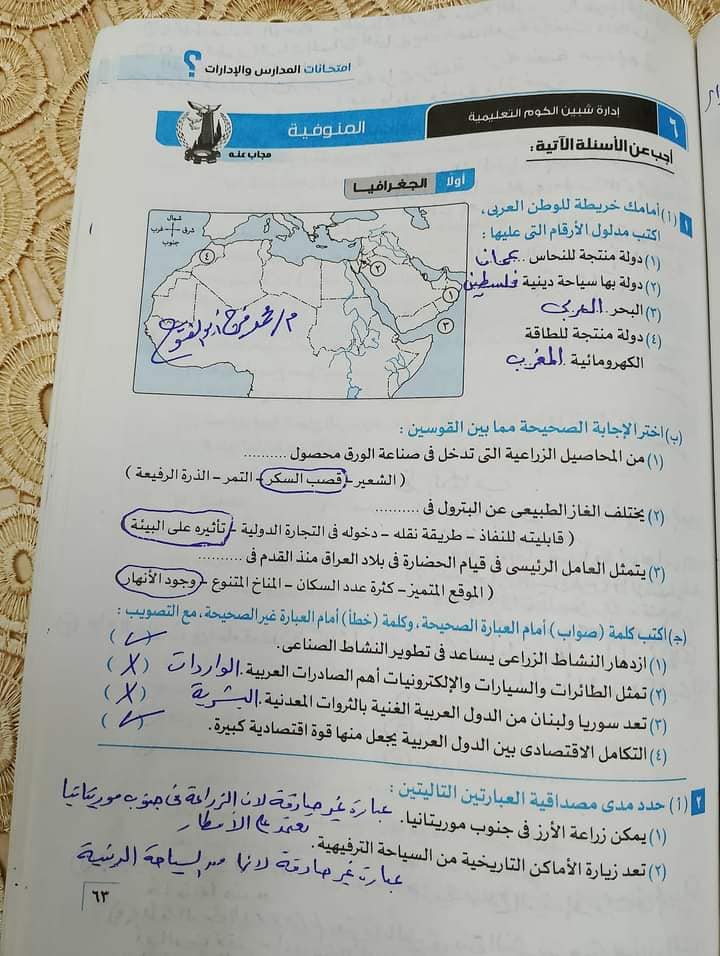 امتحانات المدارس والإدارات ؟
٦ إدارة شبين الكوم التعليمية
المنوفية
مجاب عنه
أجب عن الأسئلة الآتية :
أولًا الجغرافيا
١ (أ) أمامك خريطة للوطن العربى،
اكتب مدلول الأرقام التى عليها :
(١) دولة منتجة للنحاس .. عمان
(٢) دولة بها سياحة دينية فلسطين
(٣) البحر .. العربى
(٤) دولة منتجة للطاقة
الكهرومائية .. المغرب
شمال
شرق غرب
جنوب
٤
٢
١
٣
م/ محمد فرج أبو الفتوح
(ب) اختر الإجابة الصحيحة مما بين القوسين :
(١) من المحاصيل الزراعية التى تدخل فى صناعة الورق محصول ..........
( الشعير – قصب السكر – التمر – الذرة الرفيعة )
(٢) يختلف الغاز الطبيعى عن البترول فى ..........
( قابليته للنفاذ – طريقة نقله – دخوله فى التجارة الدولية – تأثيره على البيئة )
(٣) يتمثل العامل الرئيسى فى قيام الحضارة فى بلاد العراق منذ القدم فى ..........
( الموقع المتميز – كثرة عدد السكان – المناخ المتنوع – وجود الأنهار )
(جـ) اكتب كلمة (صواب) أمام العبارة الصحيحة، وكلمة (خطأ) أمام العبارة غير الصحيحة، مع التصويب :
(١) ازدهار النشاط الزراعى يساعد فى تطوير النشاط الصناعى. ( ✓ )
(٢) تمثل الطائرات والسيارات والإلكترونيات أهم الصادرات العربية. الواردات ( X )
(٣) تعد سوريا ولبنان من الدول العربية الغنية بالثروات المعدنية. البشرية ( X )
(٤) التكامل الاقتصادى بين الدول العربية يجعل منها قوة اقتصادية كبيرة. ( ✓ )
٢ (أ) حدد مدى مصداقية العبارتين التاليتين :
(١) يمكن زراعة الأرز فى جنوب موريتانيا. عبارة غير صادقة لان الزراعة فى جنوب موريتانيا
تعتمد على الأمطار
(٢) تعد زيارة الأماكن التاريخية من السياحة الترفيهية.
عبارة غير صادقة لانها من السياحة
٦٣